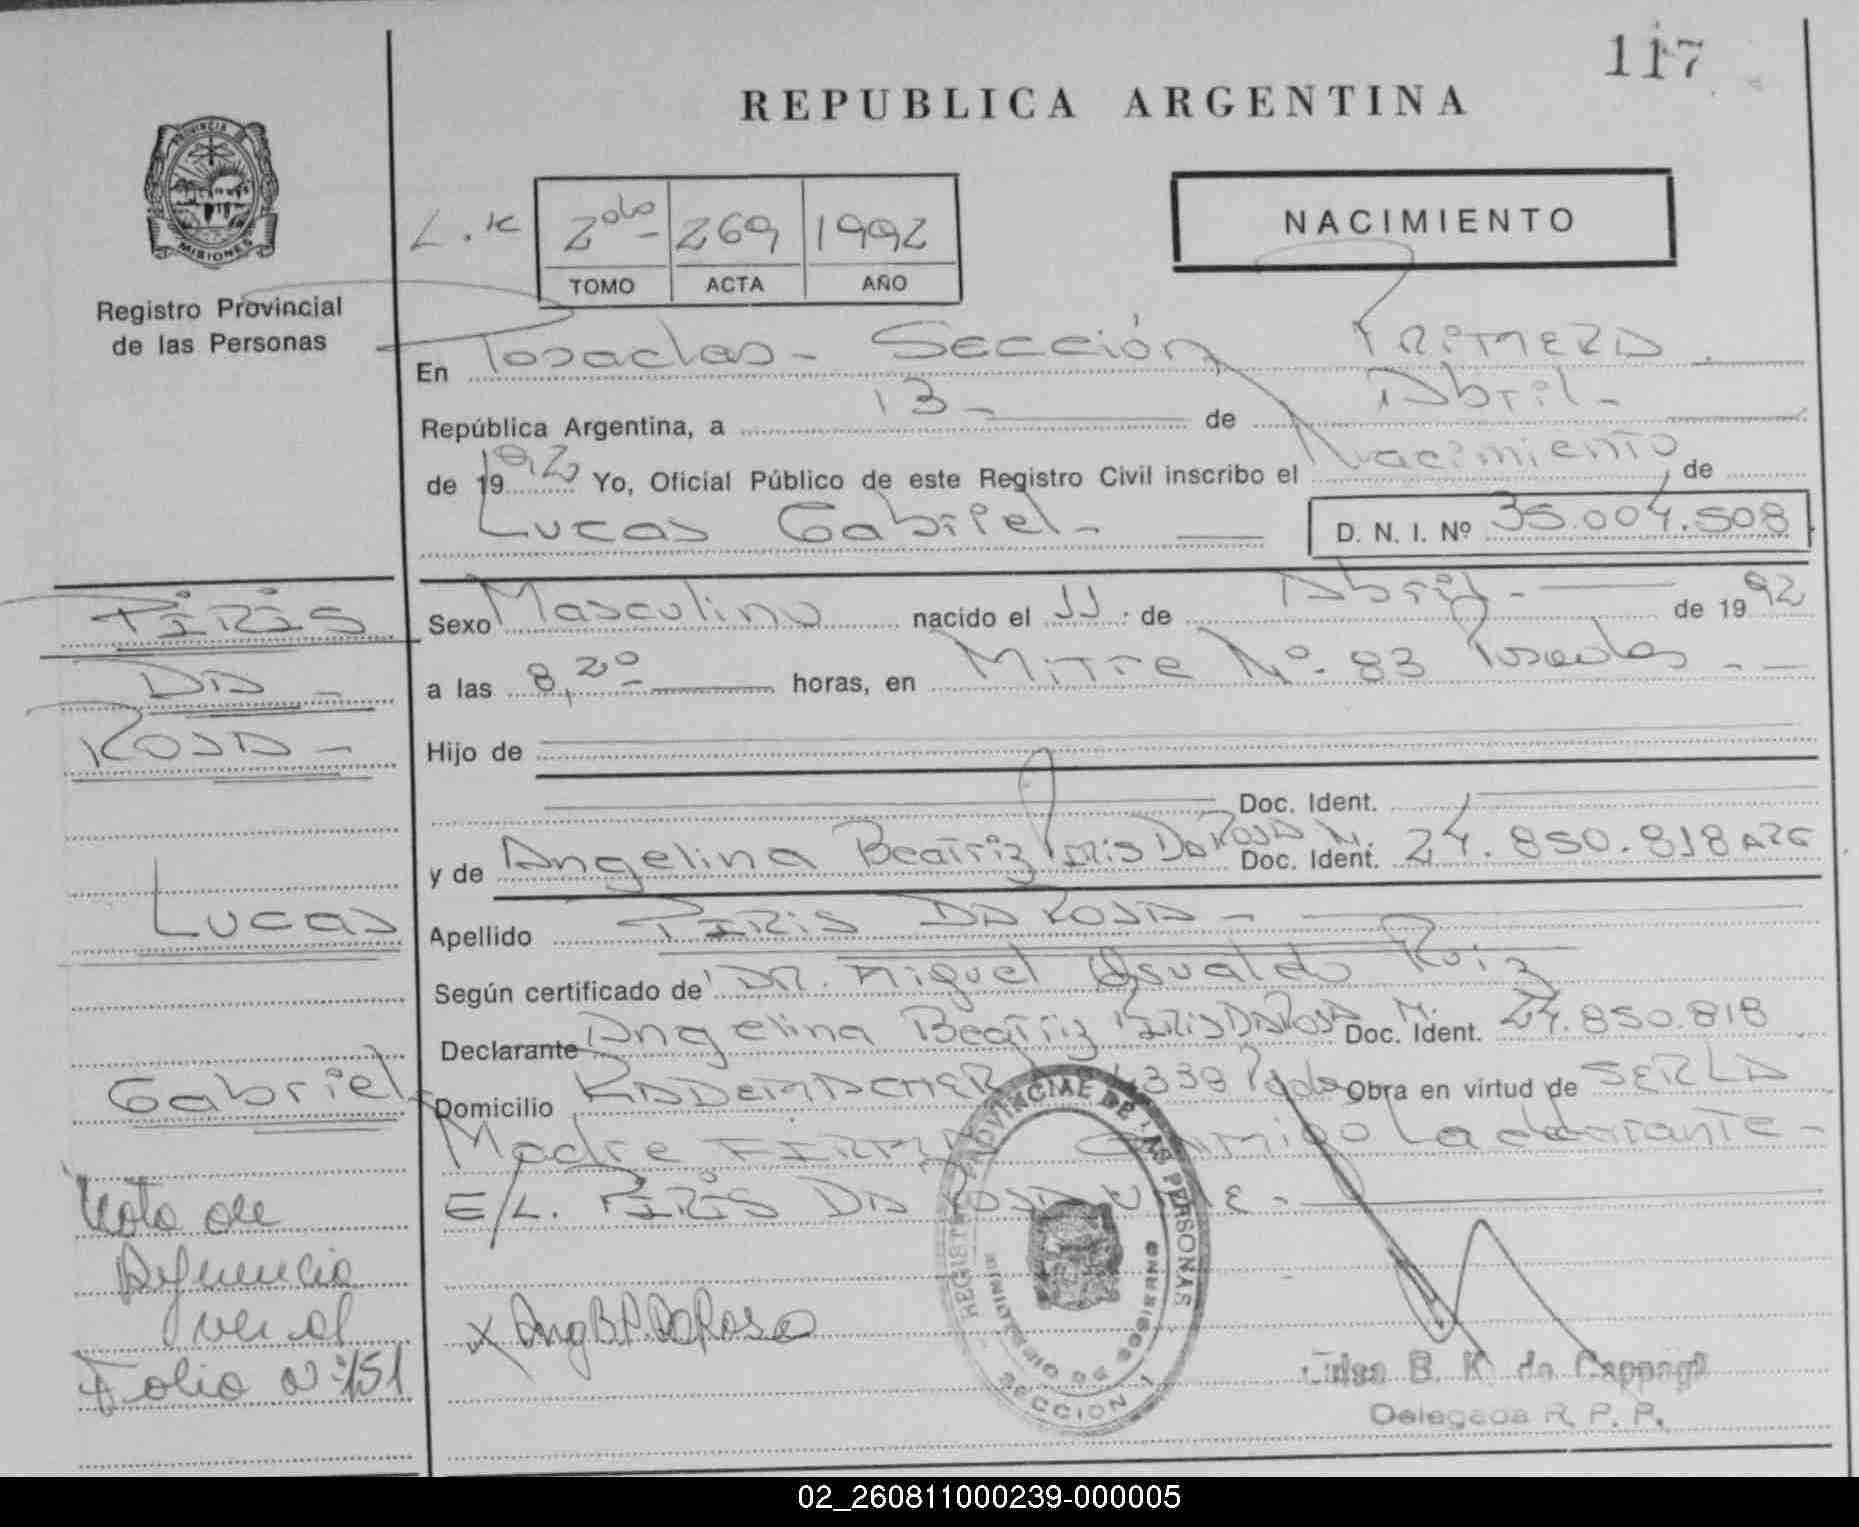 117
REPUBLICA ARGENTINA
PROVINCIA DE MISIONES
Registro Provincial
de las Personas
L. K 2do - 269 1992
TOMO ACTA AÑO
NACIMIENTO
En Posadas - Sección Primera
República Argentina, a 13 - de Abril -
de 1992 Yo, Oficial Público de este Registro Civil inscribo el Nacimiento de
Lucas Gabriel - D. N. I. Nº 35.004.508
Sexo Masculino nacido el 11. de Abril - de 1992
a las 8,20 horas, en Mitre Nº 83 Posadas - -
Hijo de
Doc. Ident.
y de Angelina Beatriz Piris Da Rosa Doc. Ident. M. 24.850.818 ARG
Apellido PIRIS DA ROSA -
Según certificado de DR. Miguel Osvaldo Ruiz
Declarante Angelina Beatriz PIRIS DA ROSA Doc. Ident. M. 24.850.818
Domicilio RADEMACHER 4338 Pdas Obra en virtud de SER LA
Madre FIRMA Conmigo La declarante -
E/L. PIRIS DA ROSA VALE -
PIRIS
DA -
ROSA -
Lucas
Gabriel
Nota de
Referencia
ver al
Folio Nº 151
x Ang B. P. Da Rosa
REGISTRO PROVINCIAL DE LAS PERSONAS
MINISTERIO DE GOBIERNO
SECCION 1
B. K. de
Delegada R. P. P.
02_260811000239-000005